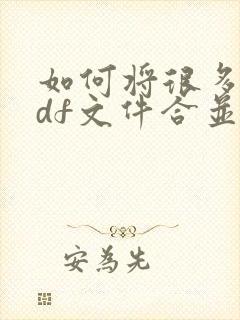 如何将很多
df文件合并
安為先